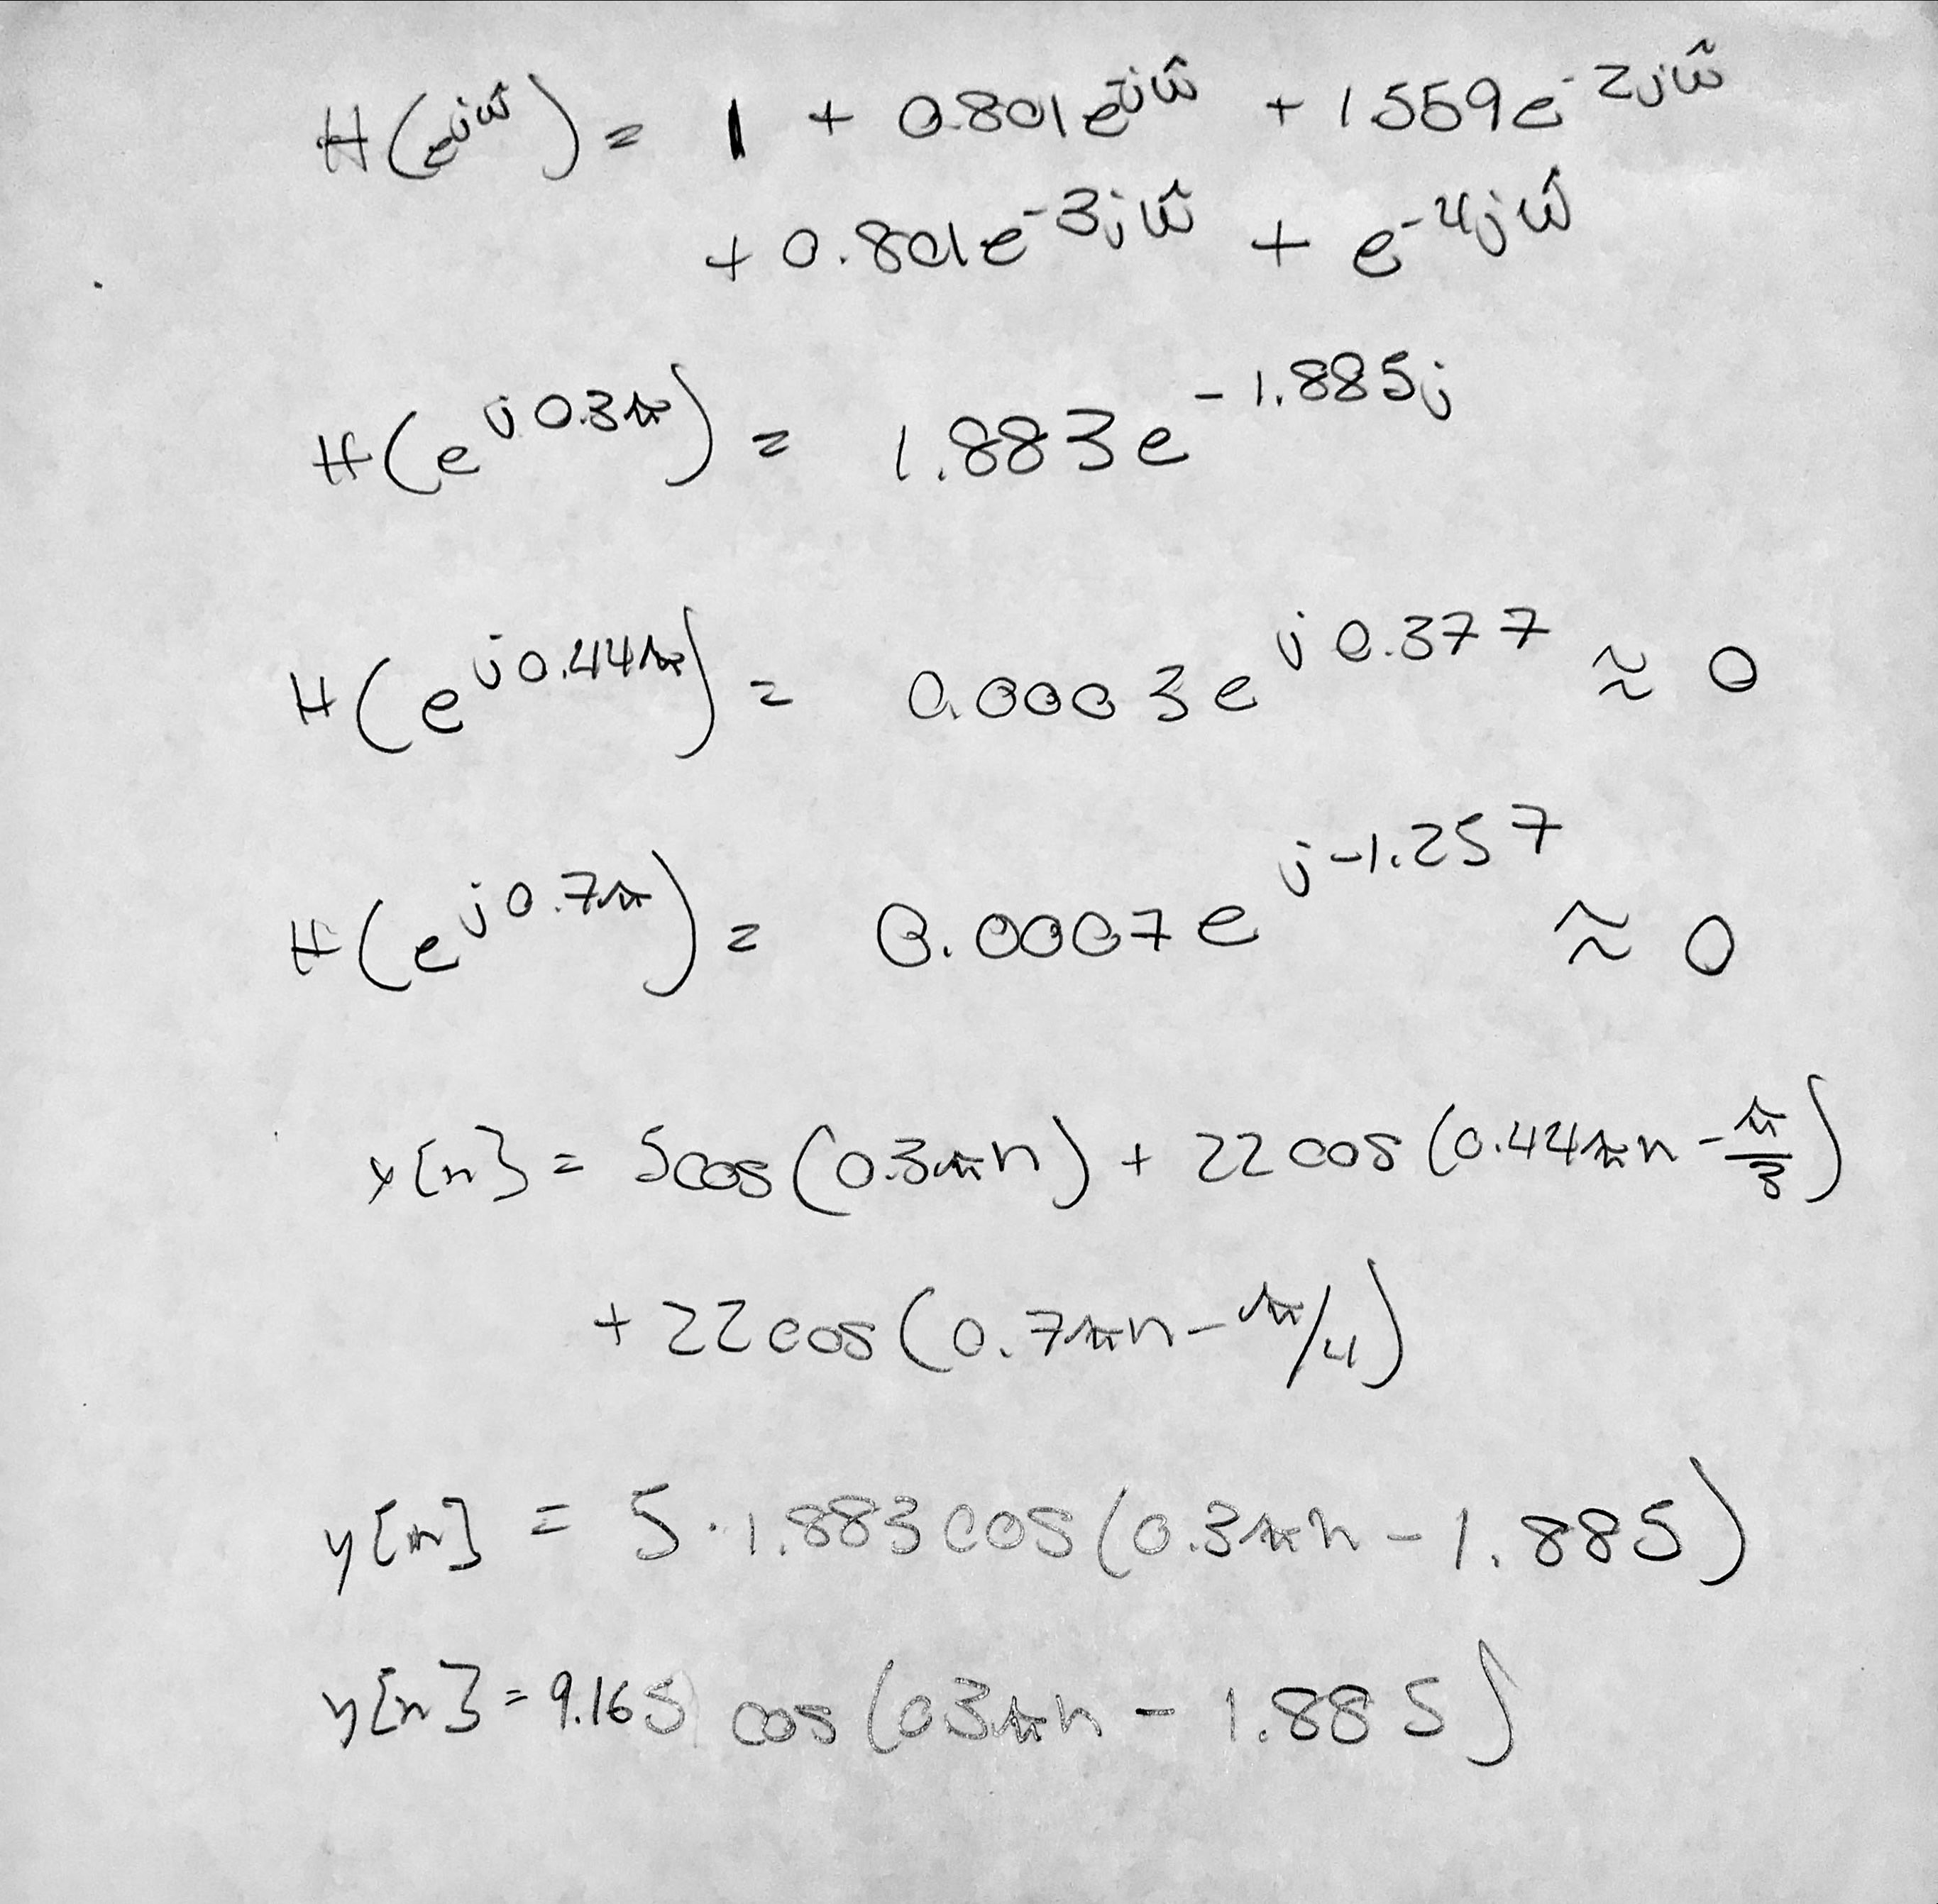 H(e^{jŵ}) = 1 + 0.801e^{-jŵ} + 1.559e^{-2jŵ}
+ 0.801e^{-3jŵ} + e^{-4jŵ}
H(e^{j0.3π}) = 1.883e^{-1.885j}
H(e^{j0.44π}) = 0.0003e^{j0.377} ≈ 0
H(e^{j0.7π}) = 0.0007e^{j-1.257} ≈ 0
x[n] = 5cos(0.3πn) + 22cos(0.44πn - π/3)
+ 22cos(0.7πn - π/4)
y[n] = 5·1.883cos(0.3πn - 1.885)
y[n] = 9.165 cos(0.3πn - 1.885)